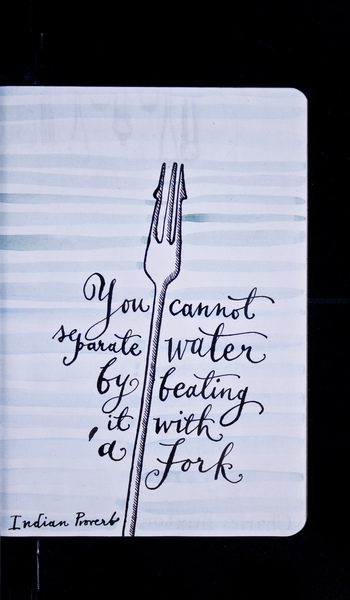 You cannot
separate water
by beating
it with
a Fork
Indian Proverb